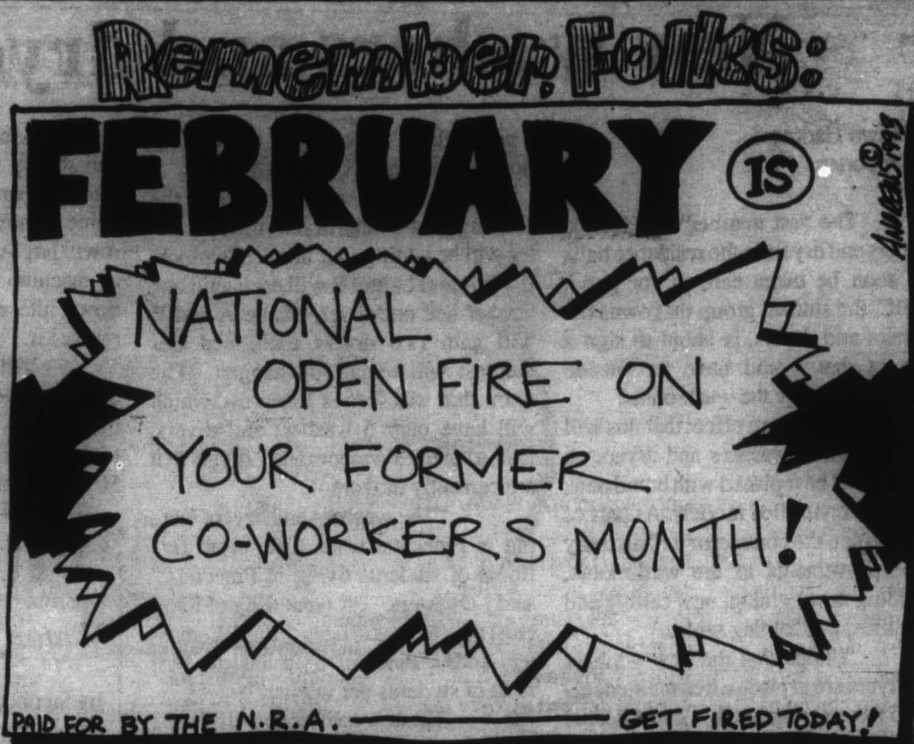 Remember, Folks:
FEBRUARY IS
© ANDREWS 1993
NATIONAL
OPEN FIRE ON
YOUR FORMER
CO-WORKERS MONTH!
PAID FOR BY THE N.R.A. GET FIRED TODAY!